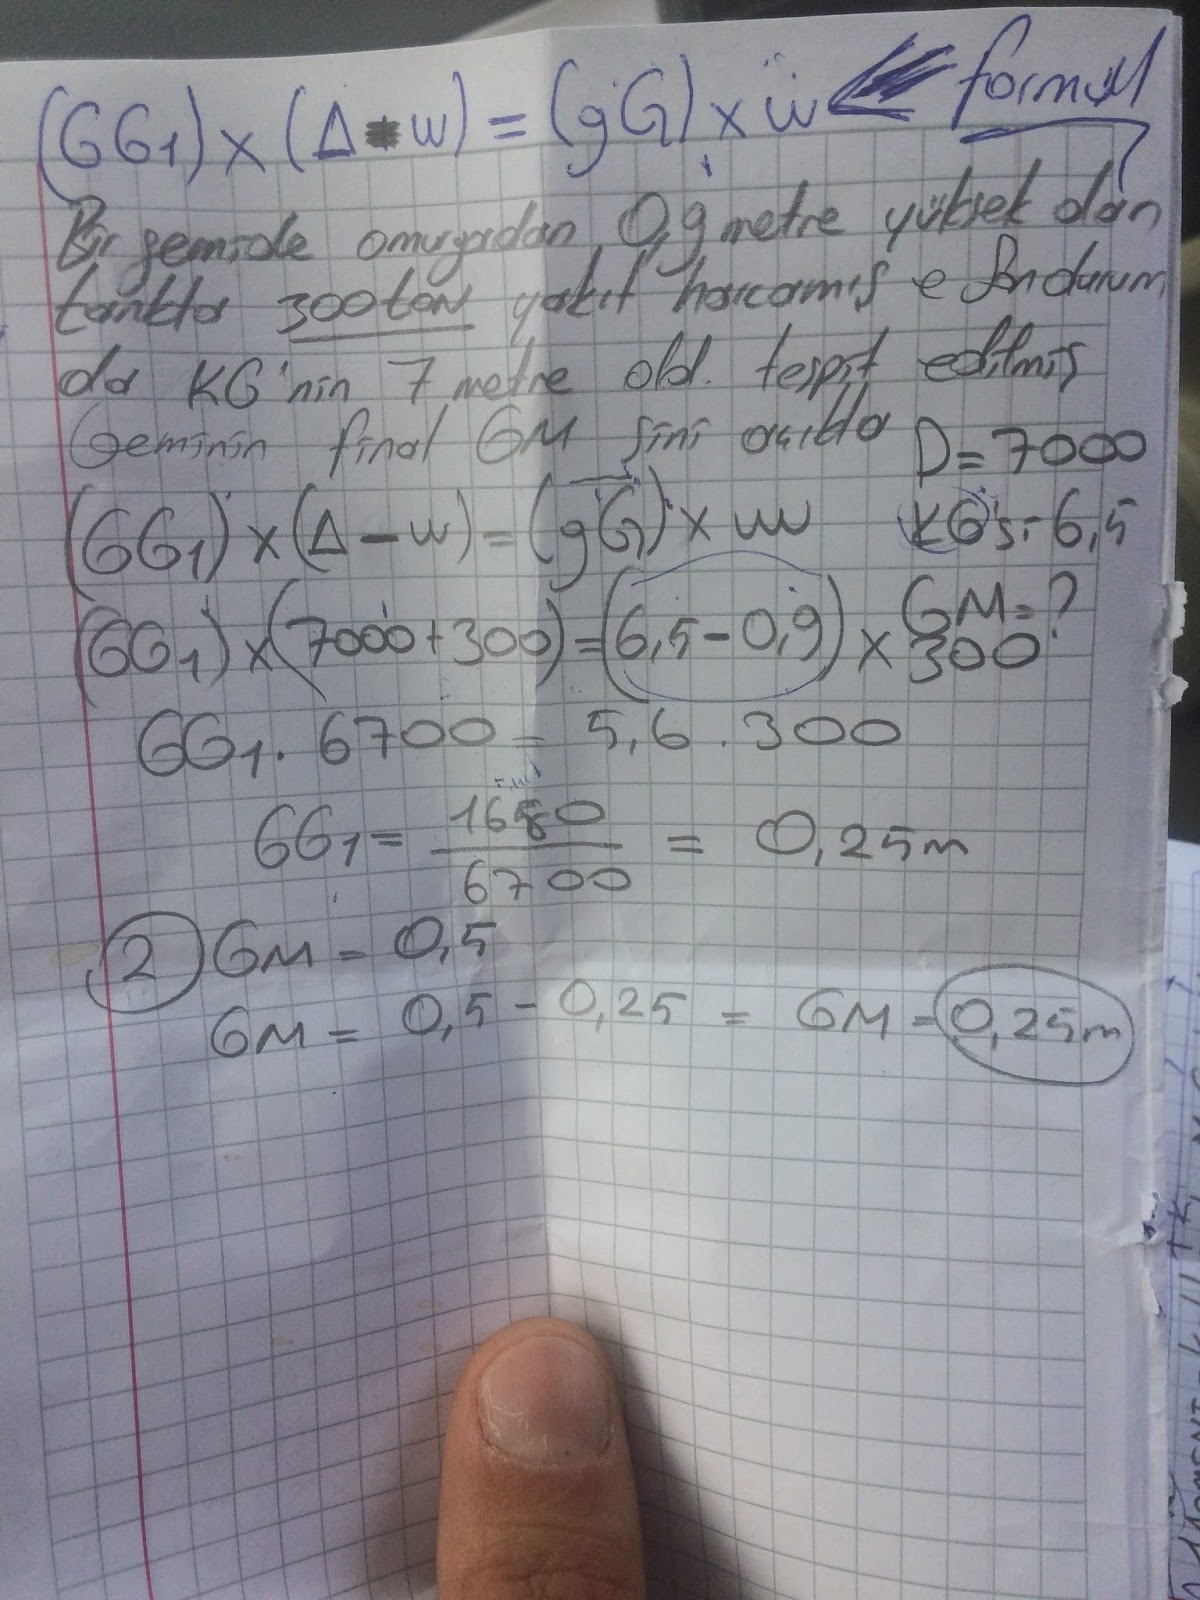 (GG1) x (Δ w) = (gG) x w formül
Bir gemide omurgadan 0,9 metre yüksek olan
tankta 300 ton yakıt harcamış o andurum
da KG'nin 7 metre old. tespit edilmiş
Geminin final GM sini D = 7000
(GG1) x (Δ - w) = (gG) x w KG's: 6,5
GM = ?
(GG1) x (7000 + 300) = (6,5 - 0,9) x 300
GG1 . 6700 = 5,6 . 300
GG1 = 1680 / 6700 = 0,25m
2 GM = 0,5
GM = 0,5 - 0,25 = GM = 0,25m